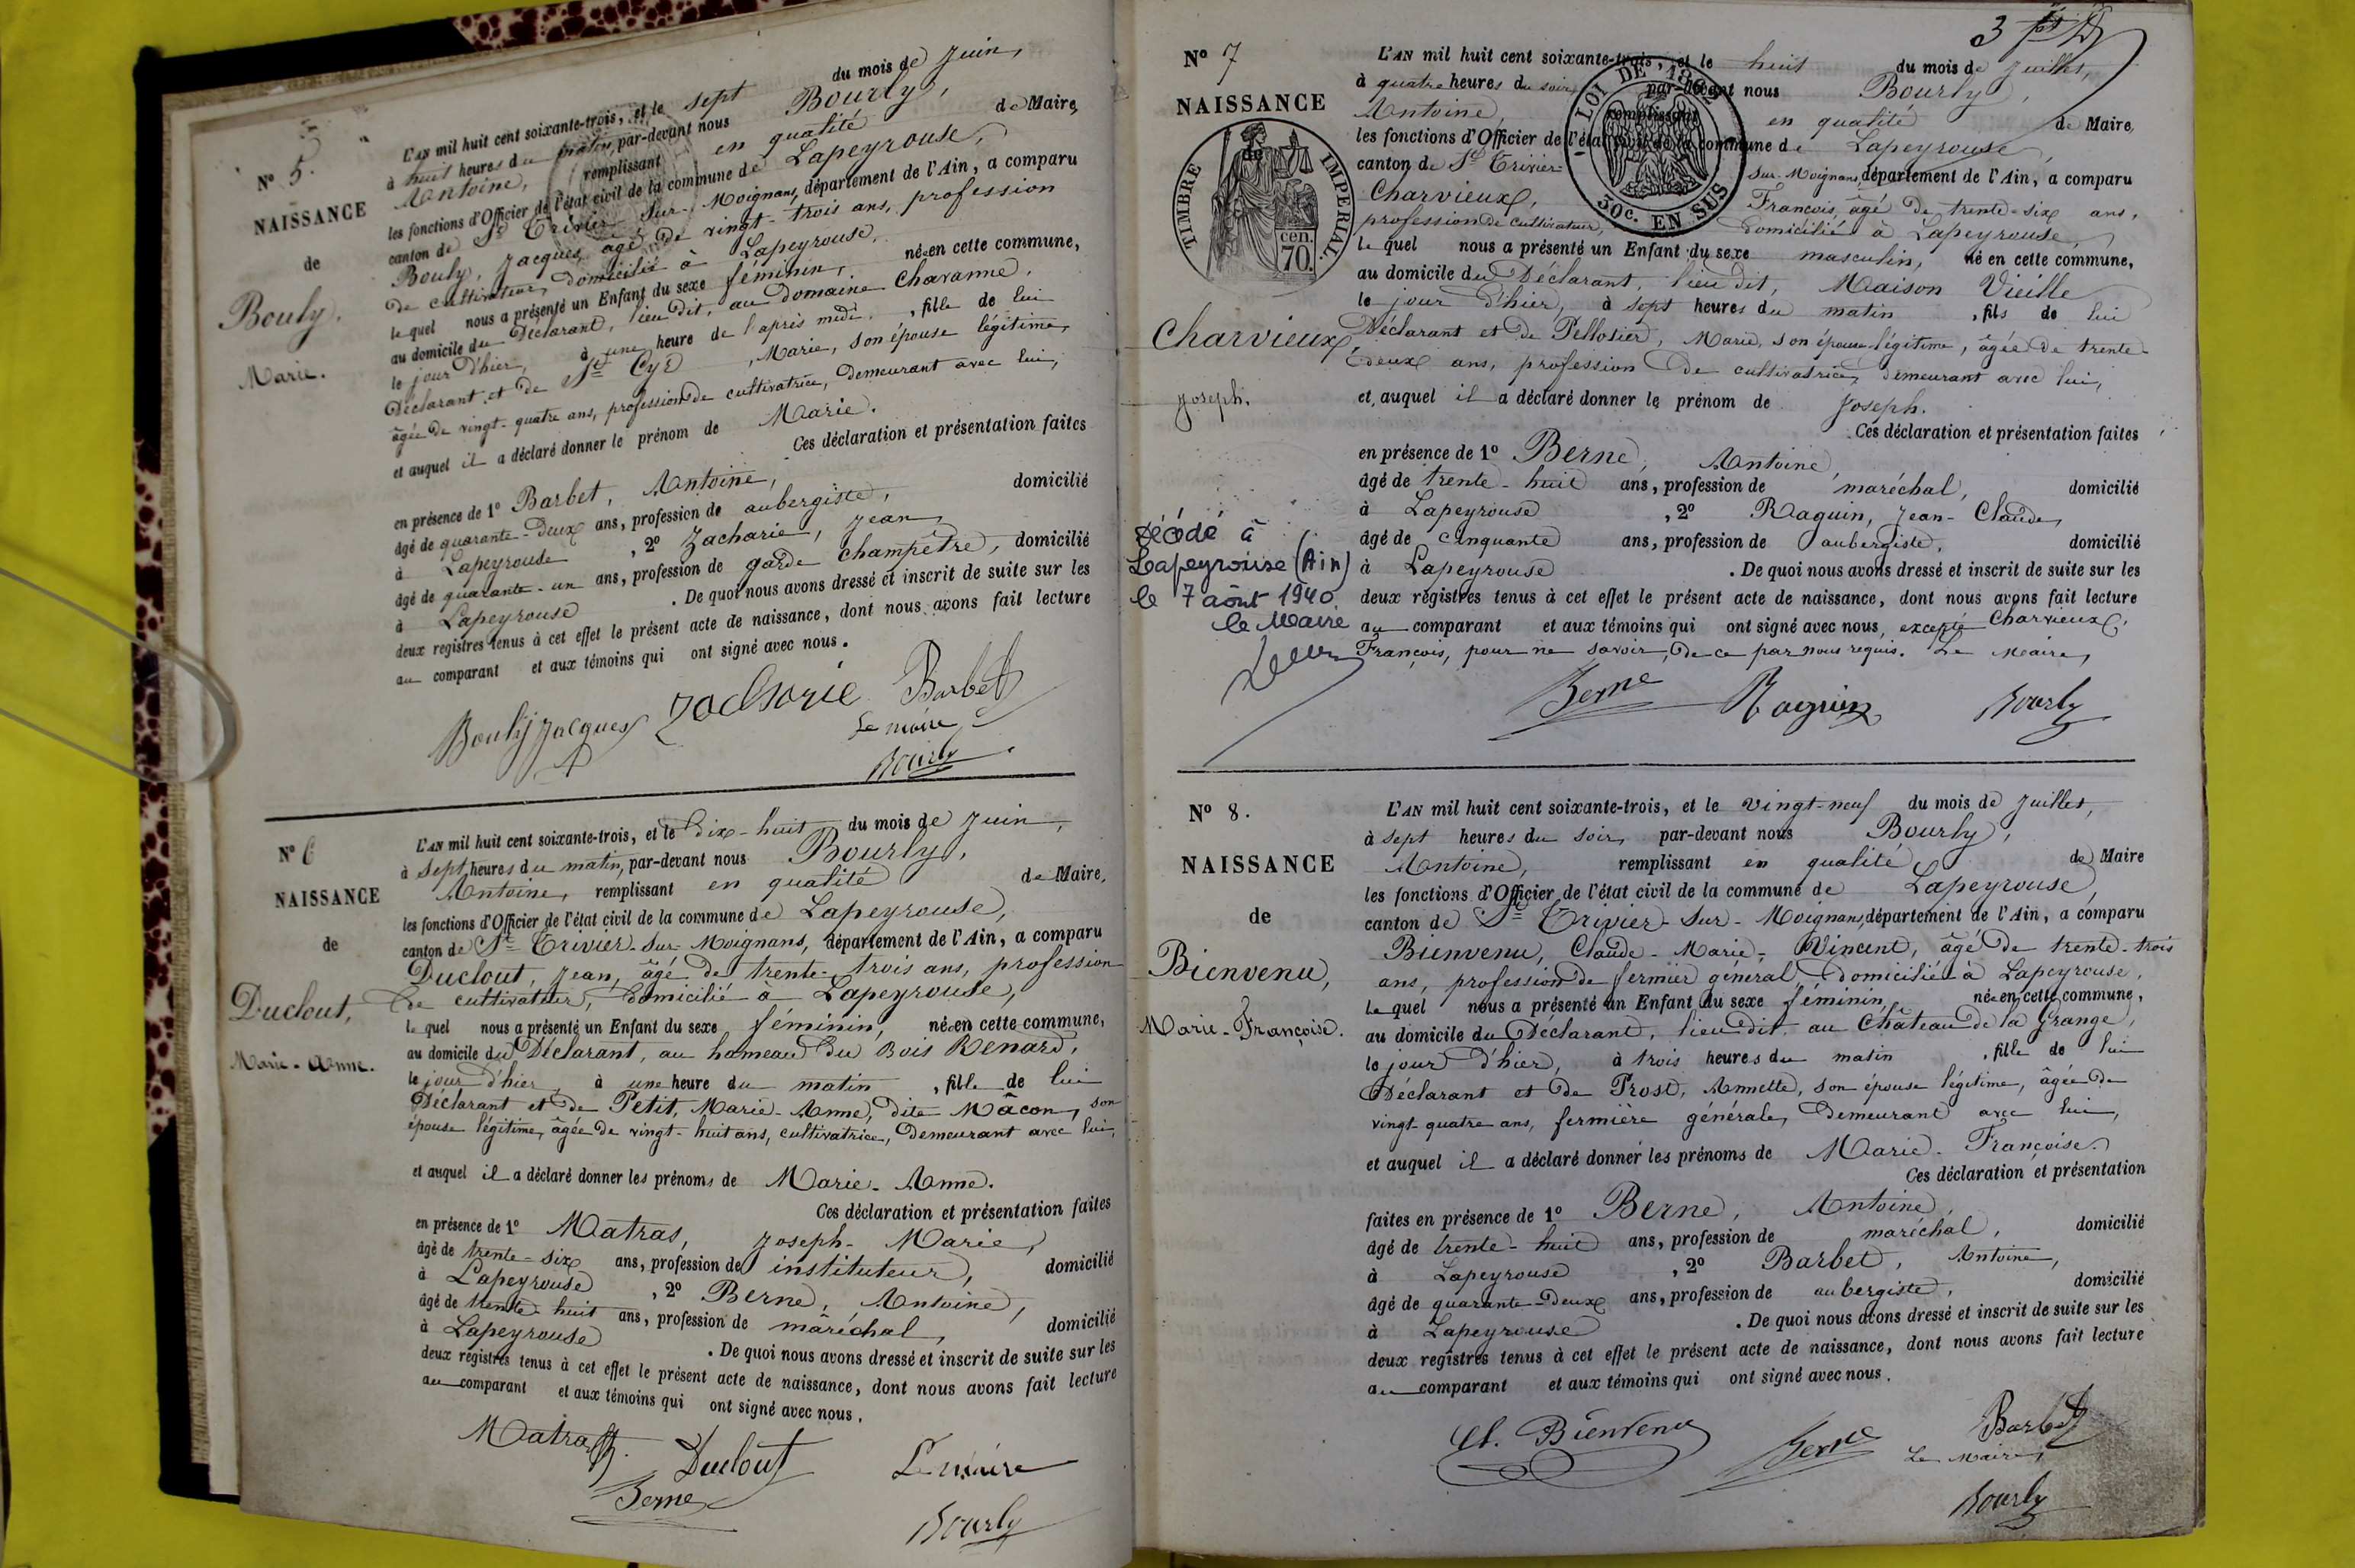 N° 5.
NAISSANCE
de
Bouly,
Marie.
L'AN mil huit cent soixante-trois, et le sept du mois de Juin,
à huit heures du matin, par-devant nous Bourly,
Antoine, remplissant en qualité de Maire,
les fonctions d'Officier de l'état civil de la commune de Lapeyrouse,
canton de St Trivier-sur-Moignans, département de l'Ain, a comparu
Bouly, Jacques, âgé de vingt-trois ans, profession
de cultivateur, domicilié à Lapeyrouse,
lequel nous a présenté un Enfant du sexe féminin, née en cette commune,
au domicile du Déclarant, lieu dit, au domaine Chavanne,
le jour d'hier, à une heure de l'après midi, fille de lui
Déclarant et de St Cyr, Marie, son épouse légitime,
âgée de vingt-quatre ans, profession de cultivatrice, demeurant avec lui,
et auquel il a déclaré donner le prénom de Marie.
Ces déclaration et présentation faites
en présence de 1° Barbet, Antoine,
âgé de quarante-deux ans, profession de aubergiste, domicilié
à Lapeyrouse, 2° Zacharie, Jean,
âgé de quarante-un ans, profession de garde champêtre, domicilié
à Lapeyrouse. De quoi nous avons dressé et inscrit de suite sur les
deux registres tenus à cet effet le présent acte de naissance, dont nous avons fait lecture
au comparant et aux témoins qui ont signé avec nous.
Bouly Jacques Zacharie Barbet
Le maire
Bourly
N° 6
NAISSANCE
de
Duclout,
Marie-Anne.
L'AN mil huit cent soixante-trois, et le dix-huit du mois de Juin,
à sept heures du matin, par-devant nous Bourly,
Antoine, remplissant en qualité de Maire,
les fonctions d'Officier de l'état civil de la commune de Lapeyrouse,
canton de St Trivier-sur-Moignans, département de l'Ain, a comparu
Duclout, Jean, âgé de trente-trois ans, profession
de cultivateur, domicilié à Lapeyrouse,
lequel nous a présenté un Enfant du sexe féminin, née en cette commune,
au domicile du Déclarant, au hameau du Bois Renard,
le jour d'hier, à une heure du matin, fille de lui
Déclarant et de Petit, Marie-Anne, dite Mâcon, son
épouse légitime, âgée de vingt-huit ans, cultivatrice, demeurant avec lui,
et auquel il a déclaré donner les prénoms de Marie-Anne.
Ces déclaration et présentation faites
en présence de 1° Matras, Joseph-Marie,
âgé de trente-six ans, profession de instituteur, domicilié
à Lapeyrouse, 2° Berne, Antoine,
âgé de trente-huit ans, profession de maréchal, domicilié
à Lapeyrouse. De quoi nous avons dressé et inscrit de suite sur les
deux registres tenus à cet effet le présent acte de naissance, dont nous avons fait lecture
au comparant et aux témoins qui ont signé avec nous.
Matras Duclout Le maire
Berne Bourly
3
N° 7
NAISSANCE
de
TIMBRE IMPERIAL
70 cen.
LOI DE 1862
50c. EN SUS
Charvieux,
Joseph.
Décédé à
Lapeyrouse (Ain)
le 7 août 1940
le Maire
L'AN mil huit cent soixante-trois, et le huit du mois de Juillet,
à quatre heures du soir, par-devant nous Bourly,
Antoine, remplissant en qualité de Maire,
les fonctions d'Officier de l'état civil de la commune de Lapeyrouse,
canton de St Trivier-sur-Moignans, département de l'Ain, a comparu
Charvieux, François, âgé de trente-six ans,
profession de cultivateur, domicilié à Lapeyrouse,
lequel nous a présenté un Enfant du sexe masculin, né en cette commune,
au domicile du Déclarant, lieu dit, Maison Vieille
le jour d'hier, à sept heures du matin, fils de lui
Déclarant et de Pellotier, Marie, son épouse légitime, âgée de trente-
deux ans, profession de cultivatrice, demeurant avec lui,
et auquel il a déclaré donner le prénom de Joseph.
Ces déclaration et présentation faites
en présence de 1° Berne, Antoine,
âgé de trente-huit ans, profession de maréchal, domicilié
à Lapeyrouse, 2° Raguin, Jean-Claude,
âgé de cinquante ans, profession de aubergiste, domicilié
à Lapeyrouse. De quoi nous avons dressé et inscrit de suite sur les
deux registres tenus à cet effet le présent acte de naissance, dont nous avons fait lecture
au comparant et aux témoins qui ont signé avec nous, excepté Charvieux,
François, pour ne savoir, de ce par nous requis. Le Maire,
Berne Raguin Bourly
N° 8.
NAISSANCE
de
Bienvenu,
Marie-Françoise.
L'AN mil huit cent soixante-trois, et le vingt-neuf du mois de Juillet,
à sept heures du soir, par-devant nous Bourly,
Antoine, remplissant en qualité de Maire
les fonctions d'Officier de l'état civil de la commune de Lapeyrouse,
canton de St Trivier-sur-Moignans, département de l'Ain, a comparu
Bienvenu, Claude-Marie-Vincent, âgé de trente-trois
ans, profession de fermier général, domicilié à Lapeyrouse,
lequel nous a présenté un Enfant du sexe féminin, née en cette commune,
au domicile du Déclarant, lieu dit, au Château de la Grange,
le jour d'hier, à trois heures du matin, fille de lui
Déclarant et de Prost, Annette, son épouse légitime, âgée de
vingt-quatre ans, fermière générale, demeurant avec lui,
et auquel il a déclaré donner les prénoms de Marie-Françoise.
Ces déclaration et présentation
faites en présence de 1° Berne, Antoine,
âgé de trente-huit ans, profession de maréchal, domicilié
à Lapeyrouse, 2° Barbet, Antoine,
âgé de quarante-deux ans, profession de aubergiste, domicilié
à Lapeyrouse. De quoi nous avons dressé et inscrit de suite sur les
deux registres tenus à cet effet le présent acte de naissance, dont nous avons fait lecture
au comparant et aux témoins qui ont signé avec nous.
Cl. Bienvenu Berne Barbet
Le Maire,
Bourly